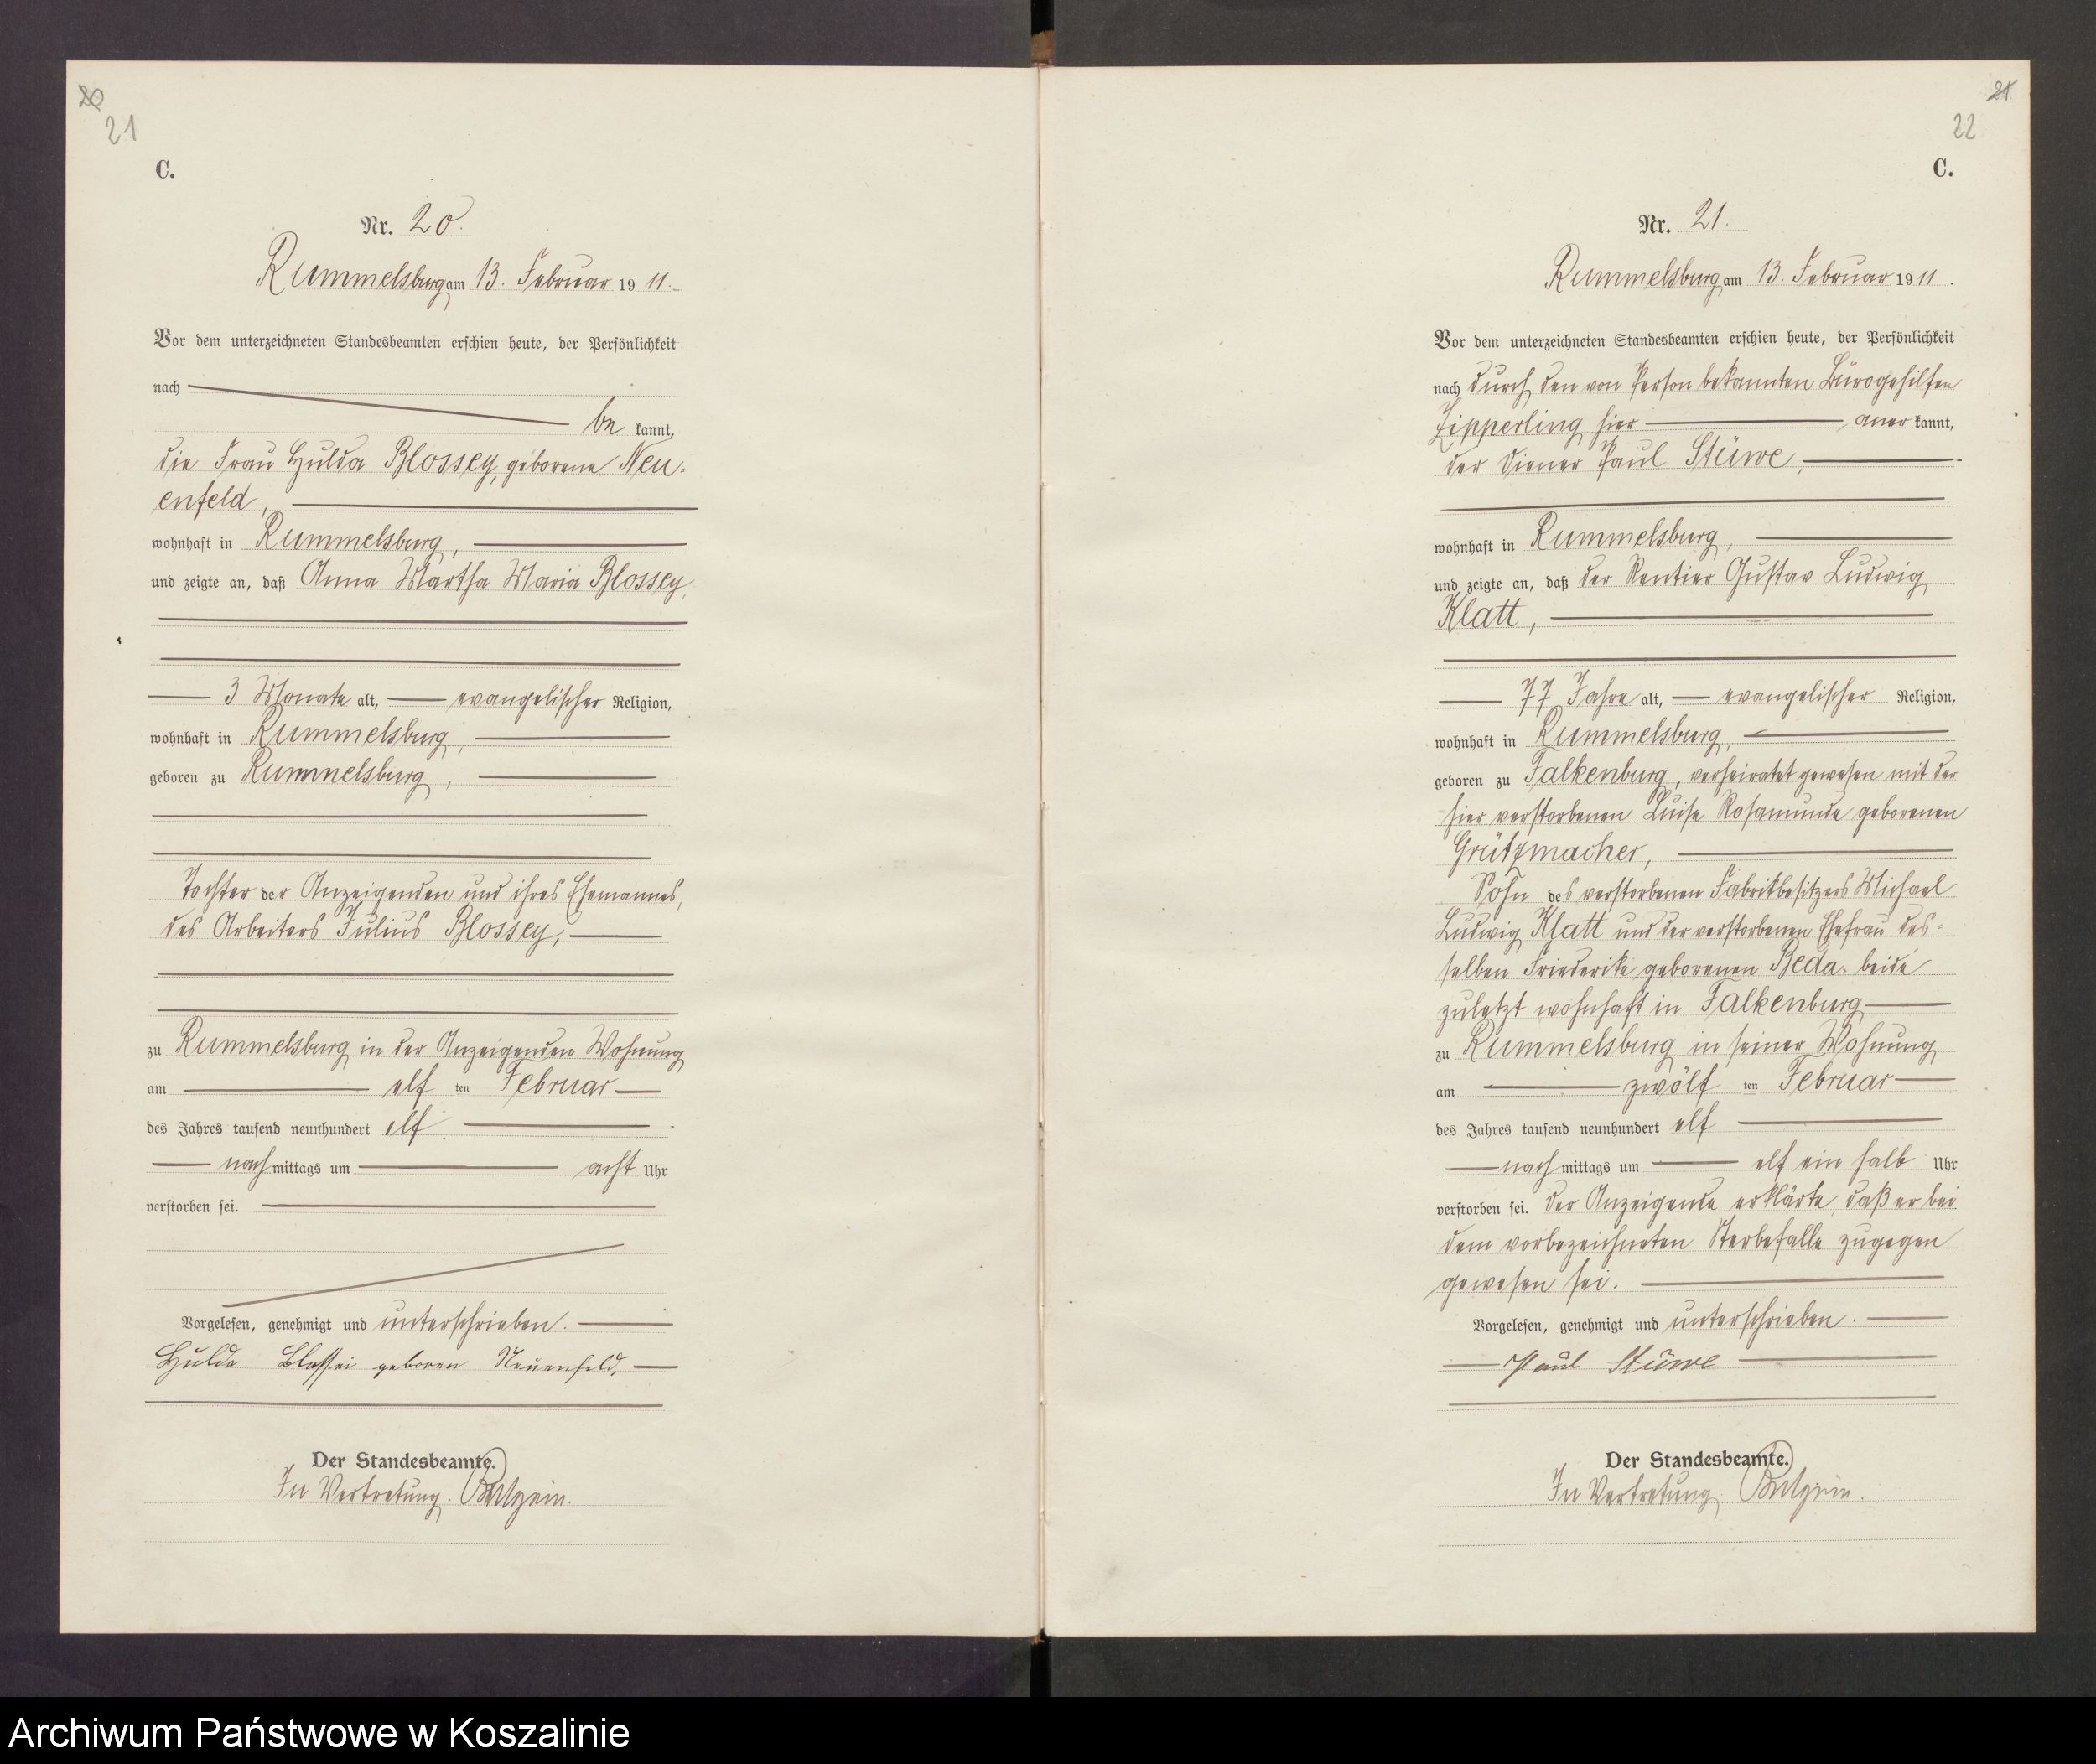 20
21
C.
Nr. 20.
Rummelsburg am 13. Februar 1911.
Vor dem unterzeichneten Standesbeamten erschien heute, der Persönlichkeit
nach
be kannt,
die Frau Hulda Blossey, geborene Neu-
enfeld,
wohnhaft in Rummelsburg,
und zeigte an, daß Anna Martha Maria Blossey,
3 Monate alt, evangelischer Religion,
wohnhaft in Rummelsburg,
geboren zu Rummelsburg,
Tochter der Anzeigenden und ihres Ehemannes,
des Arbeiters Julius Blossey,
zu Rummelsburg in der Anzeigenden Wohnung
am elf ten Februar
des Jahres tausend neunhundert elf
nachmittags um acht Uhr
verstorben sei.
Vorgelesen, genehmigt und unterschrieben.
Hulda Blossei geboren Neuenfeld.
Der Standesbeamte.
In Vertretung.
21
22
C.
Nr. 21.
Rummelsburg am 13. Februar 1911.
Vor dem unterzeichneten Standesbeamten erschien heute, der Persönlichkeit
nach durch den von Person bekannten Bürogehilfen
Zipperling hier aner kannt,
der Diener Paul Stüwe,
wohnhaft in Rummelsburg,
und zeigte an, daß der Rentier Gustav Ludwig
Klatt,
77 Jahre alt, evangelischer Religion,
wohnhaft in Rummelsburg,
geboren zu Falkenburg, verheiratet gewesen mit der
hier verstorbenen Luise Rosamunde geborenen
Grützmacher,
Sohn des verstorbenen Fabrikbesitzers Michael
Ludwig Klatt und der verstorbenen Ehefrau des-
selben Friederike geborenen Beda. beide
zuletzt wohnhaft in Falkenburg
zu Rummelsburg in seiner Wohnung
am zwölf ten Februar
des Jahres tausend neunhundert elf
nachmittags um elf ein halb Uhr
verstorben sei. Der Anzeigende erklärte, daß er bei
dem vorbezeichneten Sterbefalle zugegen
gewesen sei.
Vorgelesen, genehmigt und unterschrieben.
Paul Stüwe
Der Standesbeamte.
In Vertretung.
Archiwum Państwowe w Koszalinie